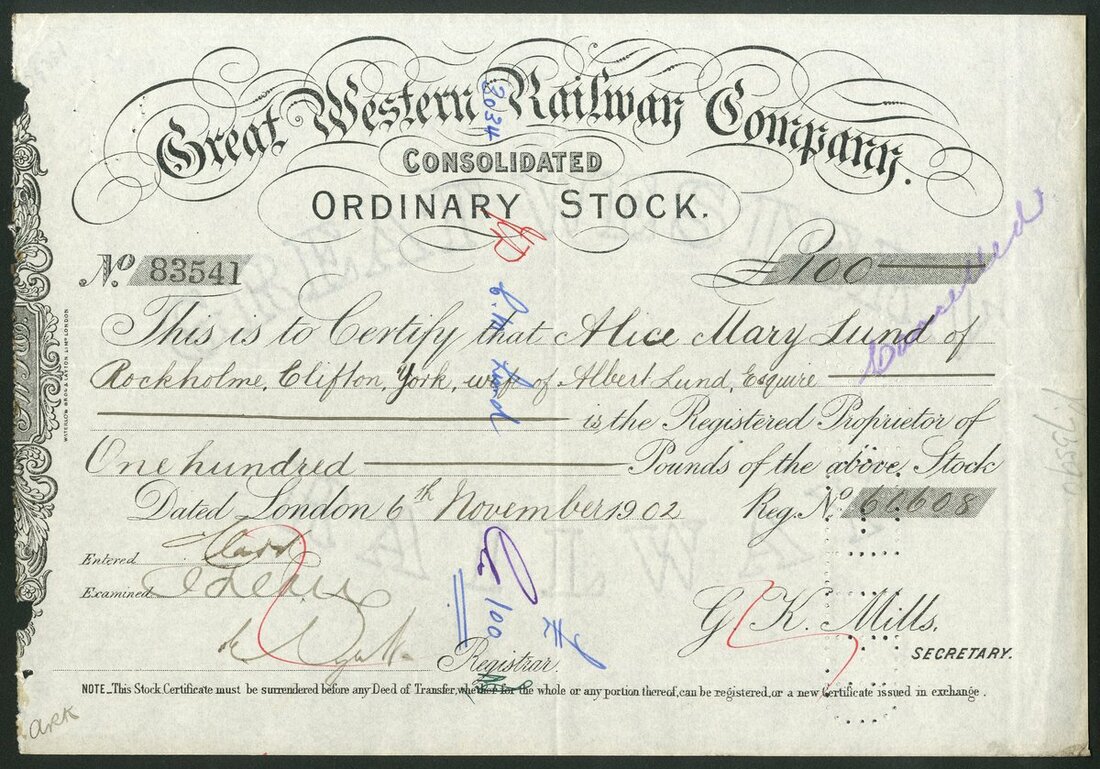 Great Western Railway Company.
3034
CONSOLIDATED
ORDINARY STOCK.
No 83541
£100
Cancelled
This is to Certify that Alice Mary Lund of
Rockholme, Clifton, York, wife of Albert Lund, Esquire
is the Registered Proprietor of
One hundred Pounds of the above Stock
Dated London 6th November 1902 Reg. No.
Entered
Examined
100
G. K. Mills,
SECRETARY.
Registrar.
NOTE_This Stock Certificate must be surrendered before any Deed of Transfer, whether for the whole or any portion thereof, can be registered, or a new Certificate issued in exchange.
ARK
WATERLOW BROS & LAYTON LIMD LONDON
GREAT WESTERN
RAILWAY